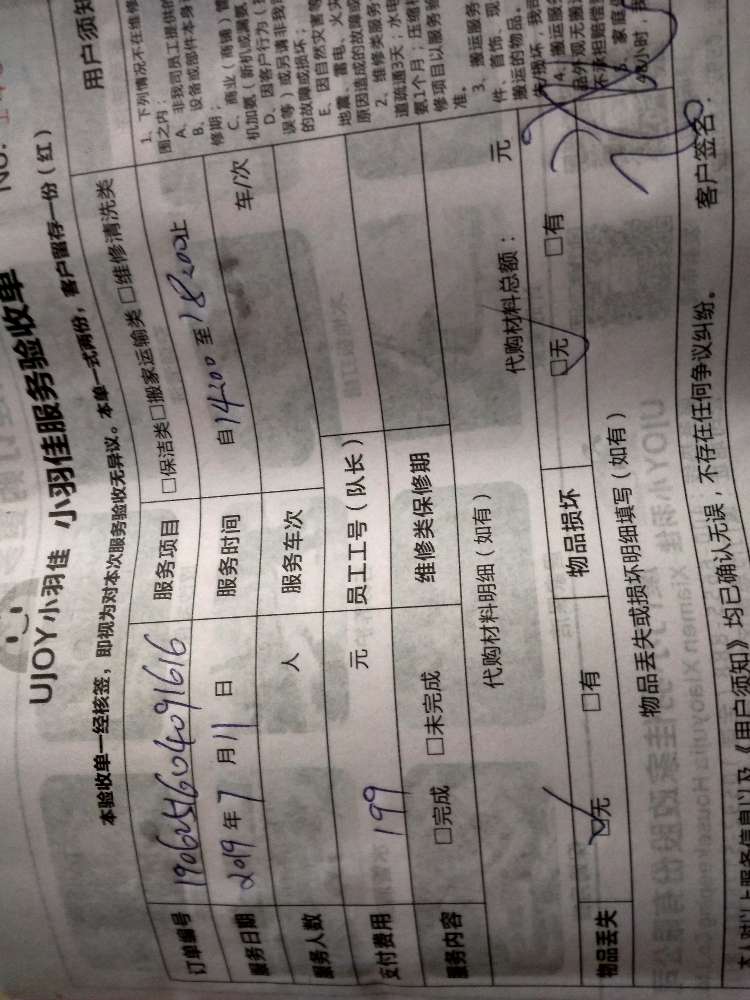 No.
UJOY小羽佳 小羽佳服务验收单
本验收单一经核签，即视为对本次服务验收无异议。本单一式两份，客户留存一份（红）
订单编号 190625160409161​6 服务项目 □保洁类□搬家运输类 □维修清洗类
服务日期 2019 年 7 月 11 日 服务时间 自 14:00 至 18:00 止
服务人数 人 服务车次 车/次
支付费用 199 元 员工工号（队长）
服务内容 □完成 □未完成 维修类保修期
代购材料明细（如有） 代购材料总额： 元
物品丢失 ☑无 □有 物品损坏 ☑无 □有
物品丢失或损坏明细填写（如有）
本人对以上服务信息以及《用户须知》均已确认无误，不存在任何争议纠纷。 客户签名：
用户须知
1、下列情况不在维修
围之内：
A、非我司员工提供的
B、设备或部件本身
修期；
C、商业（商铺）
机加氨（新机或满氨
D、因客户行为
误等）或另请非我
的故障或损坏；
E、因自然灾害等
地震、雷电、火灾
原因造成的故障或
2、维修类服务
道疏通3天；水电
氨1个月；压缩机
修项目以服务验
准。
3、搬运服务
件、首饰、现
失/损坏，我司
搬运的物品。
4、搬运服务
品外观无
不承担赔偿
5、家庭
48小时，我